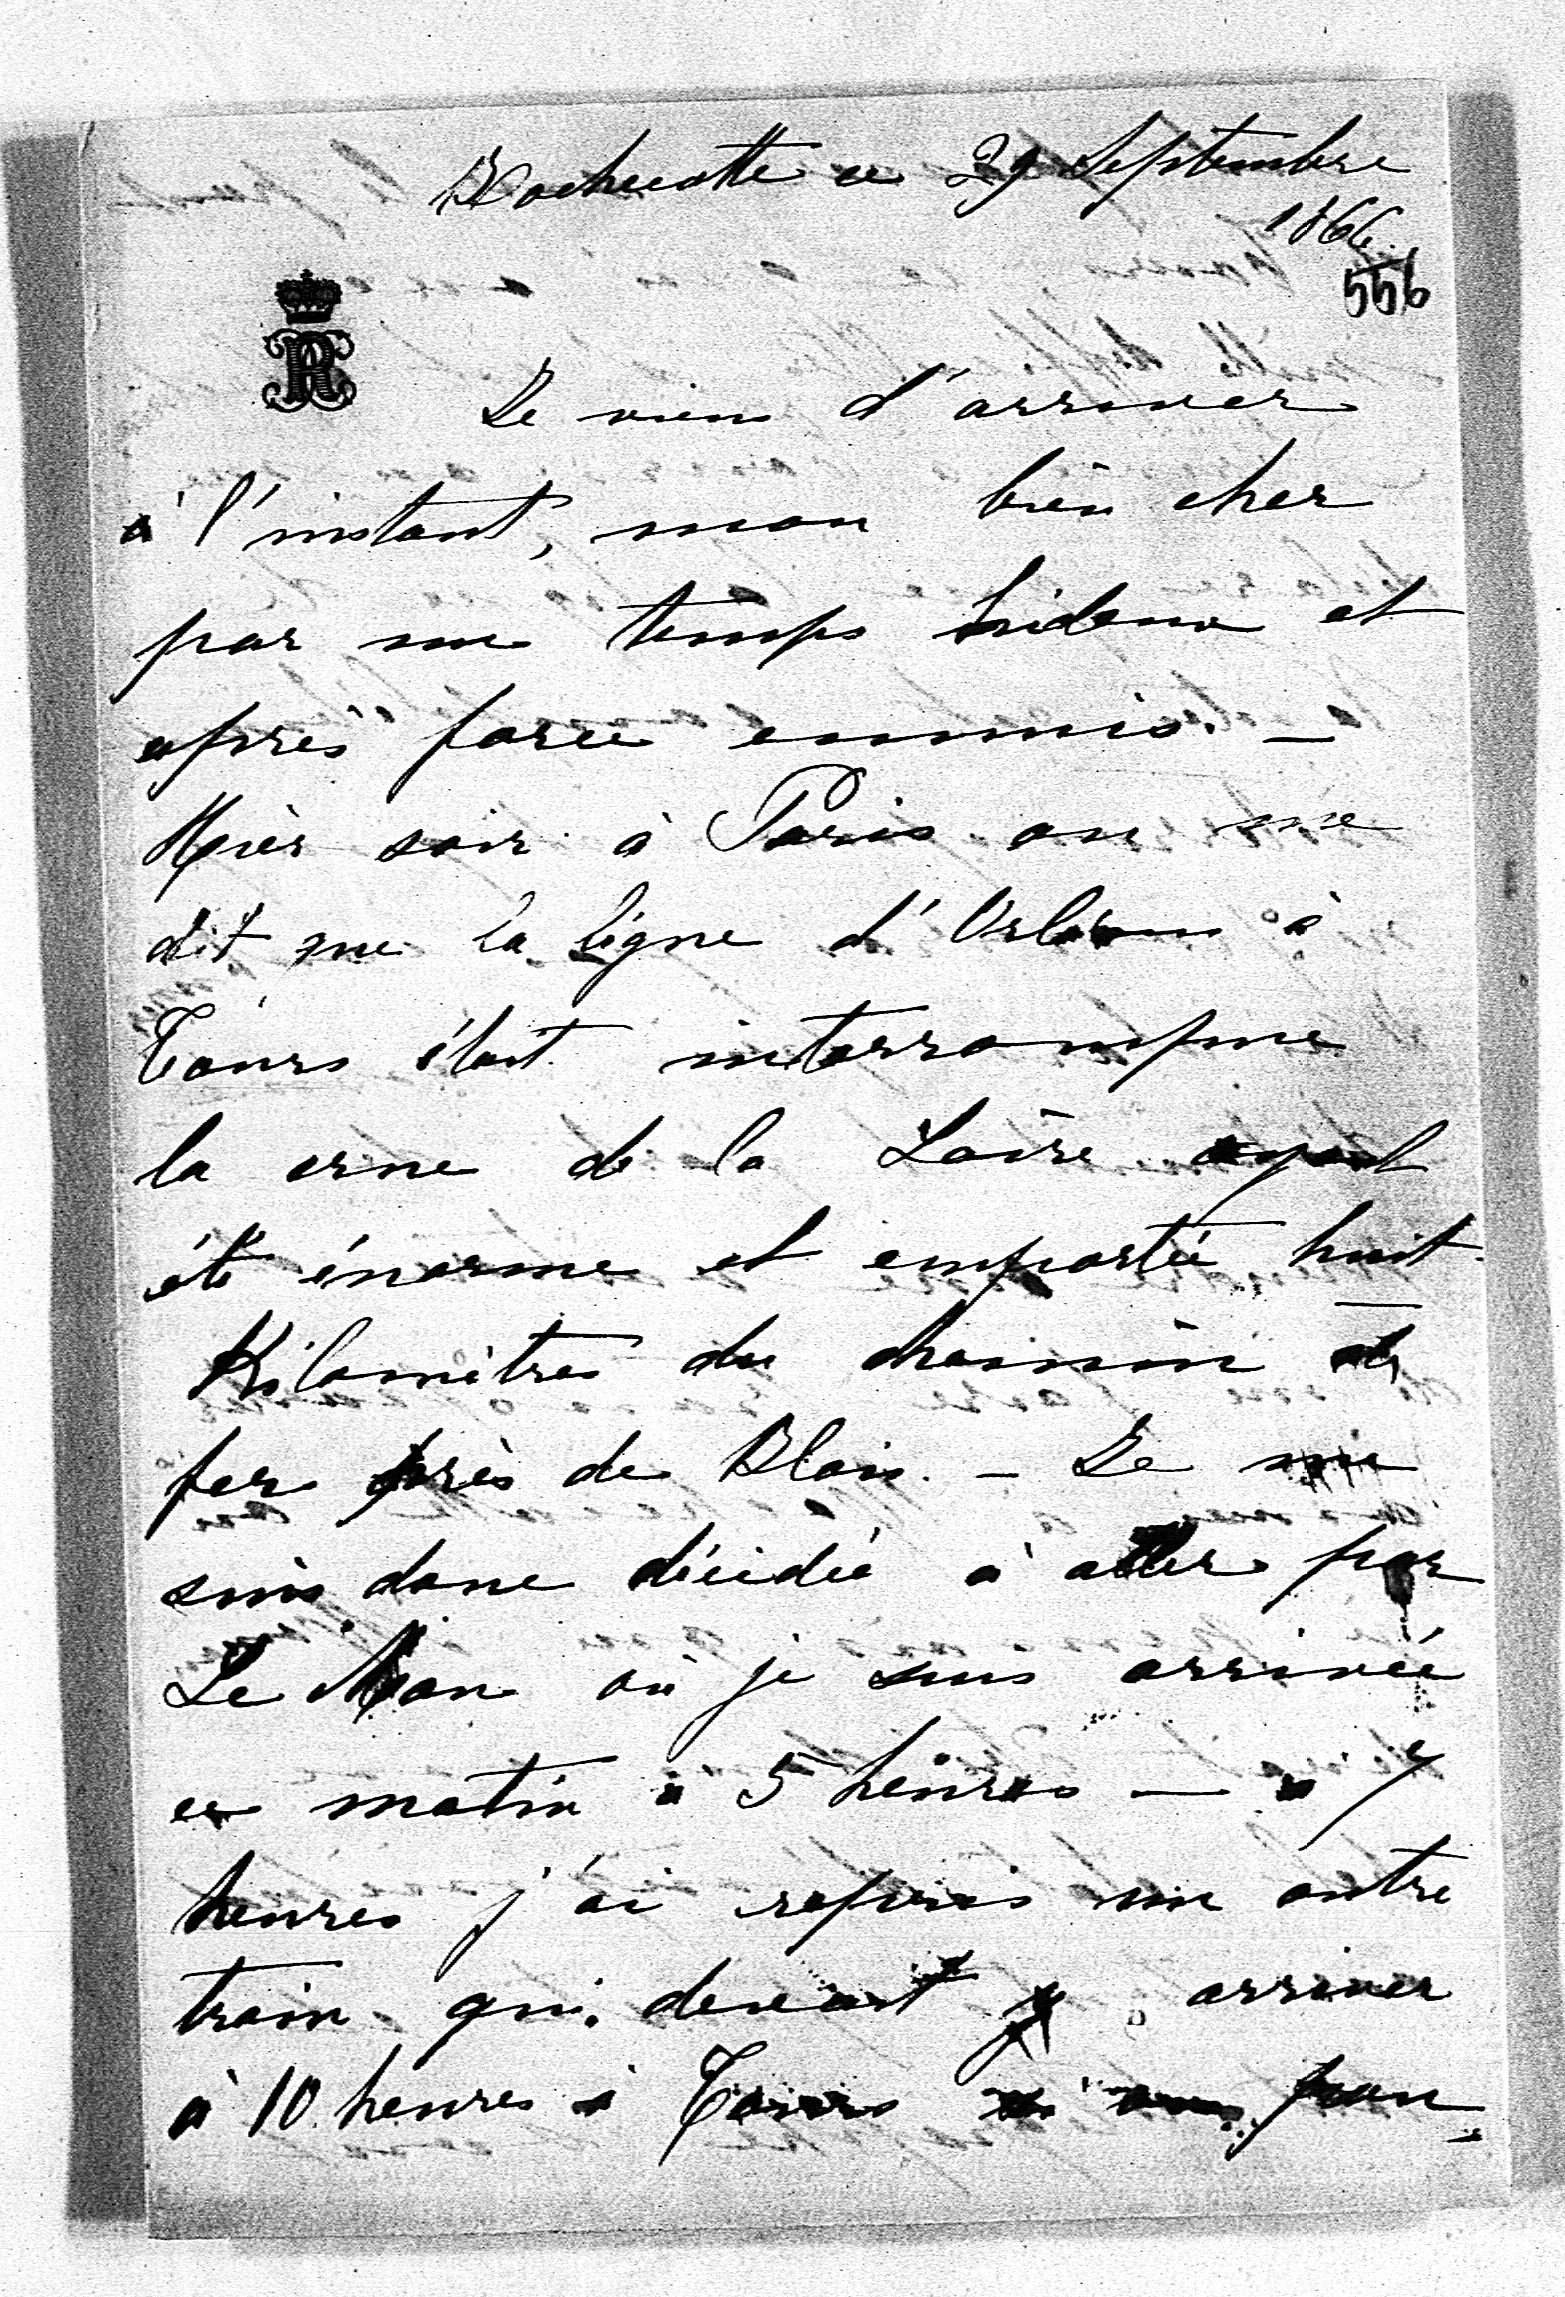 Rochecotte ce 29 Septembre
1866.
556
R
Je viens d'arriver
à l'instant, mon bien cher
par un temps hideux et
après force ennuis. —
Hier soir à Paris on me
dit que la ligne d'Orléans à
Tours était interrompue
la crue de la Loire ayant
été énorme et emportée huit
Kilomètres du chemin de
fer près de Blois. — Je me
suis donc décidée à aller par
Le Man où je suis arrivée
ce matin à 5 heures — à 7
heures j'ai repris un autre
train qui devait arriver
à 10 heures à Tours